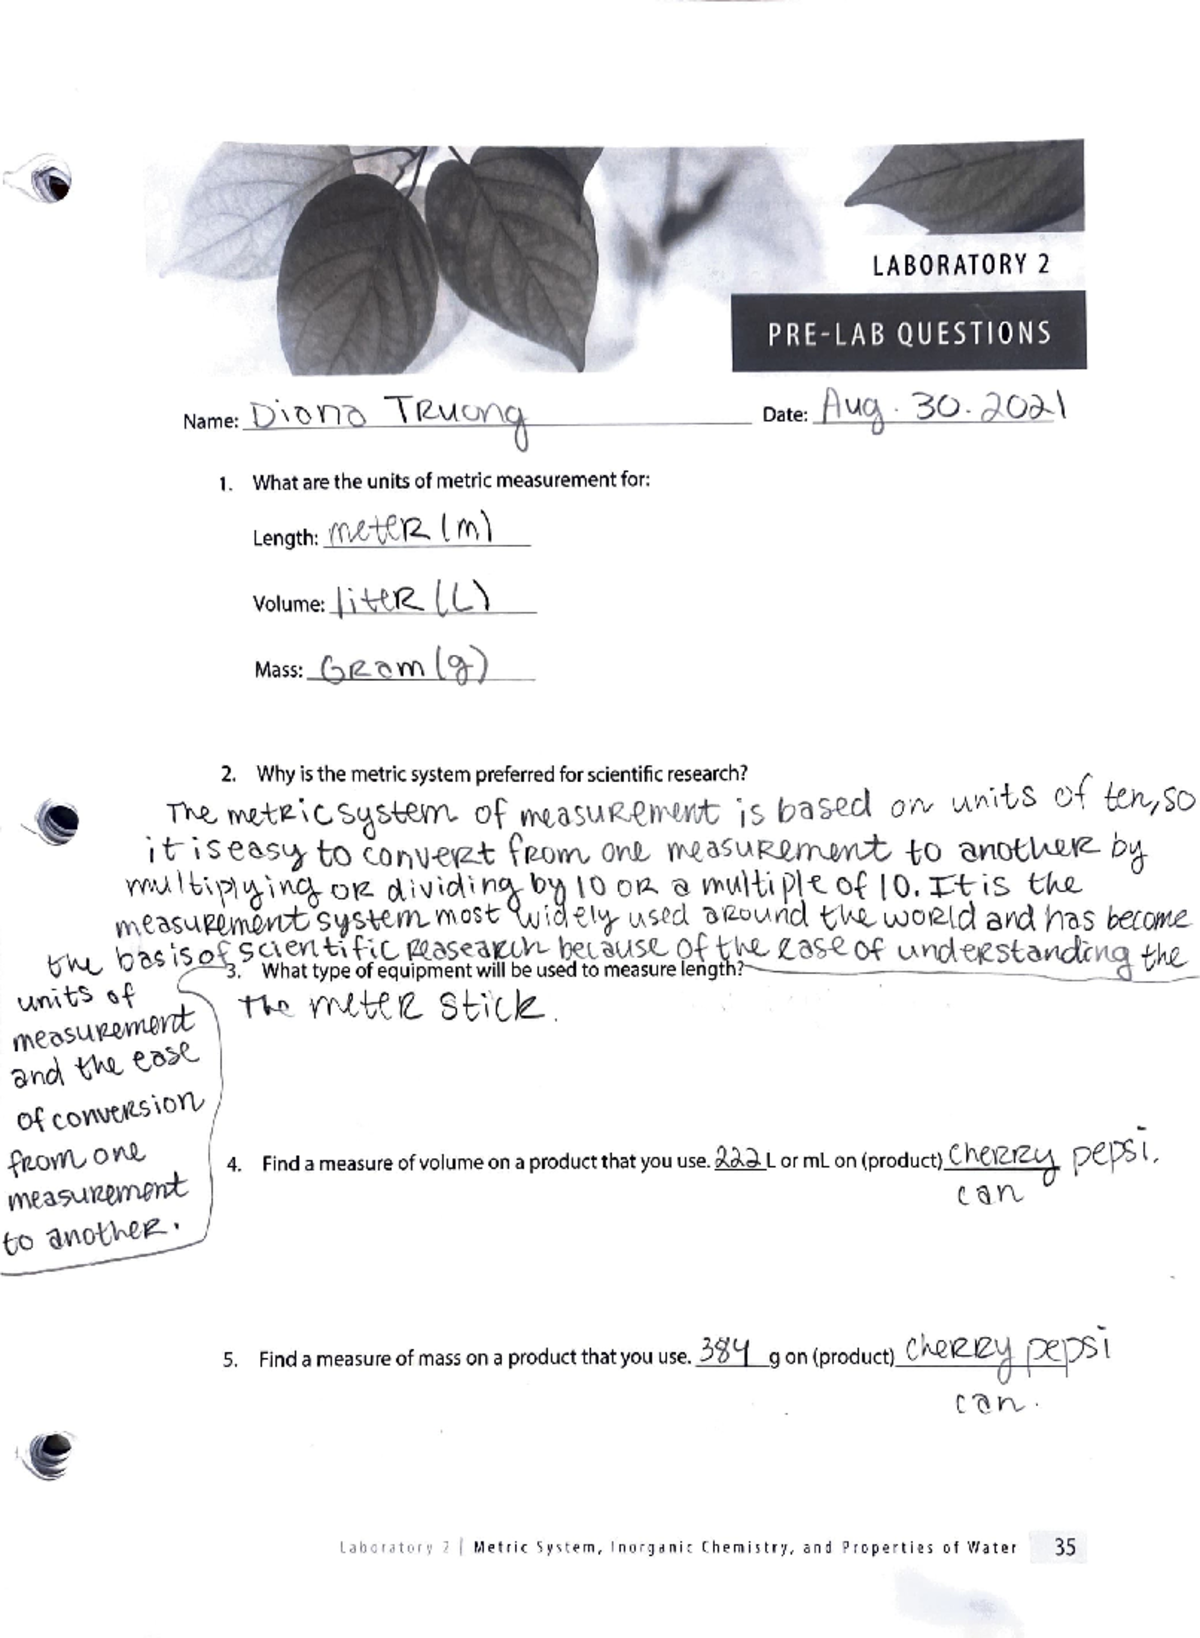 LABORATORY 2
PRE-LAB QUESTIONS
Name: Diana Truong Date: Aug. 30. 2021
1. What are the units of metric measurement for:
Length: meter (m)
Volume: liter (L)
Mass: Gram (g)
2. Why is the metric system preferred for scientific research?
The metric system of measurement is based on units of ten, so
it is easy to convert from one measurement to another by
multiplying or dividing by 10 or a multiple of 10. It is the
measurement system most widely used around the world and has become
the basis of scientific reasearch because of the ease of understanding the
units of
measurement
and the ease
of conversion
from one
measurement
to another.
3. What type of equipment will be used to measure length?
The meter stick.
4. Find a measure of volume on a product that you use. 222 L or mL on (product) cherry pepsi.
can
5. Find a measure of mass on a product that you use. 384 g on (product) cherry pepsi
can.
Laboratory 2 | Metric System, Inorganic Chemistry, and Properties of Water 35